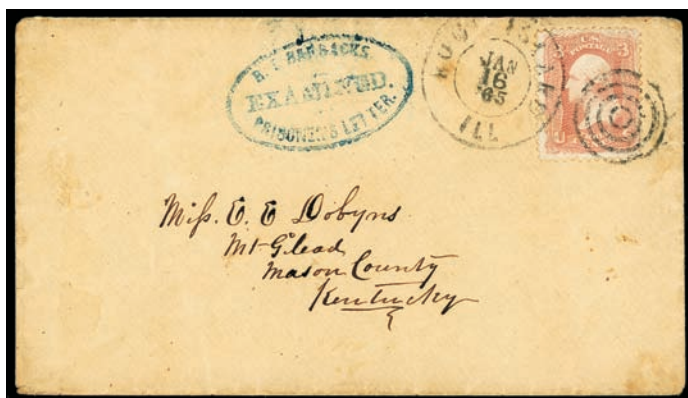 R. I. BARRACKS.
EXAMINED.
PRISONER'S LETTER.
ROCK ISLAND
JAN
16
'65
ILL
U.S.
POSTAGE
3
Miss. E. E Dobyns
Mt Gilead
Mason County
Kentucky